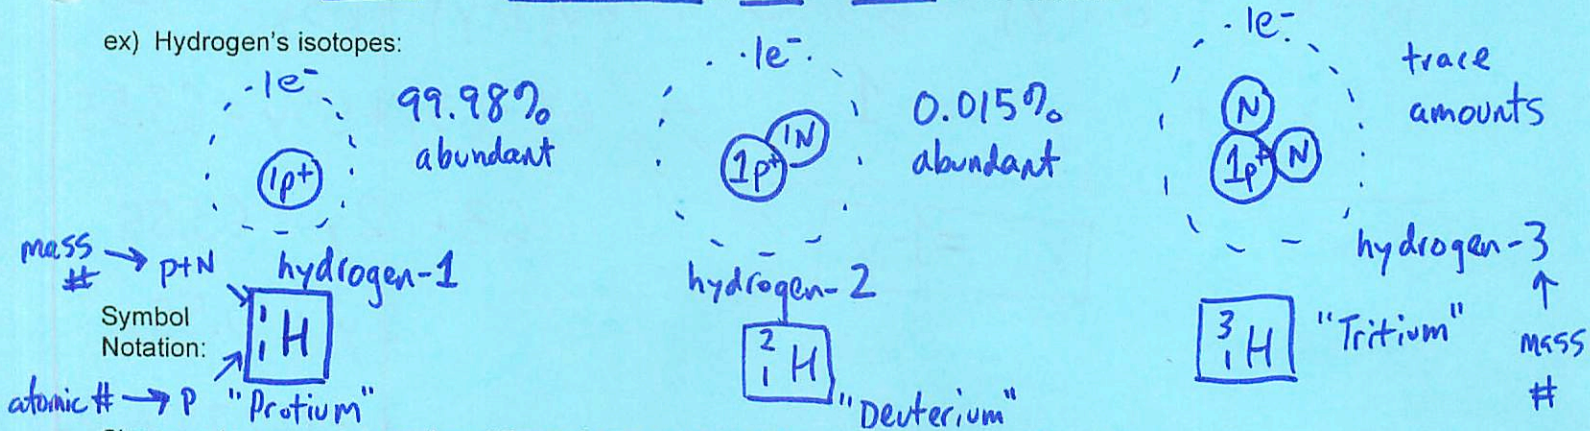 ex) Hydrogen's isotopes:
1e⁻
1p⁺
99.98%
abundant
hydrogen-1
mass # → p+N
Symbol
Notation:
¹₁H
atomic # → p
"Protium"
1e⁻
1p⁺ 1N
0.015%
abundant
hydrogen-2
²₁H
"Deuterium"
1e⁻
N
1p⁺ N
trace
amounts
hydrogen-3
↑
mass
#
³₁H
"Tritium"